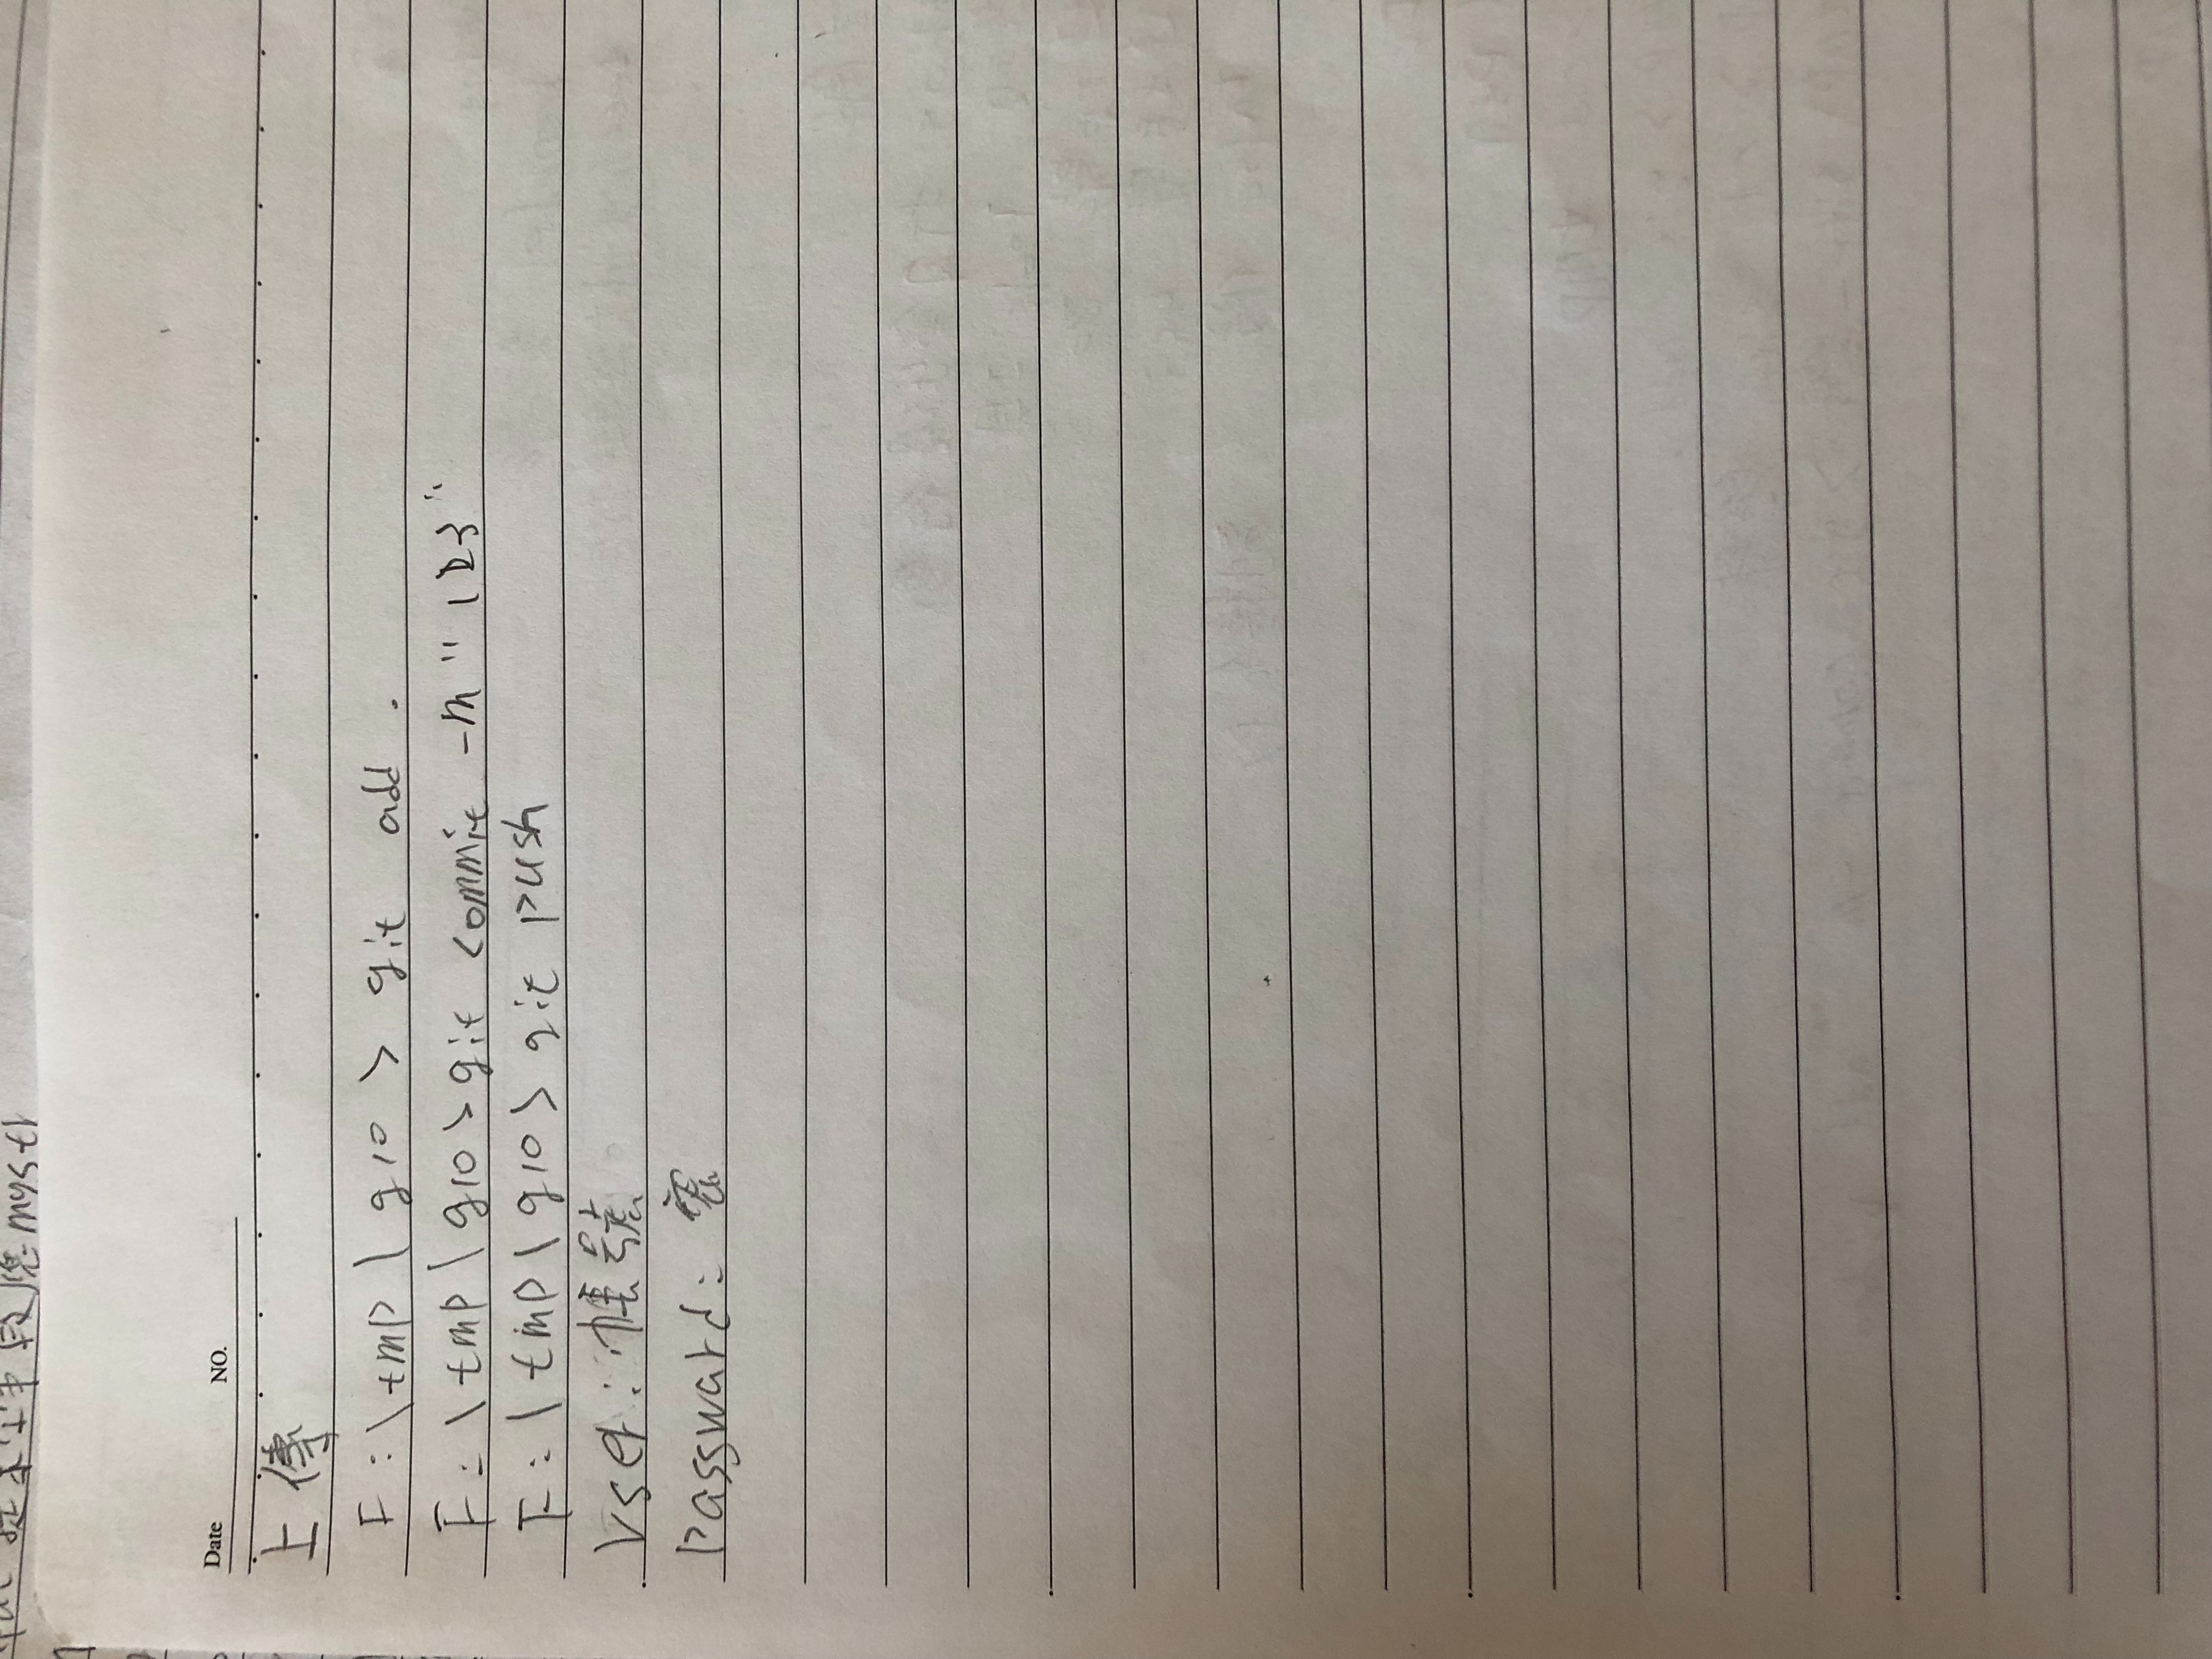 Date NO.
上傳
F:\tmp\g10> git add .
F:\tmp\g10>git commit -m "123"
F:\tmp\g10> git push
User: 帳號
Passward: 密